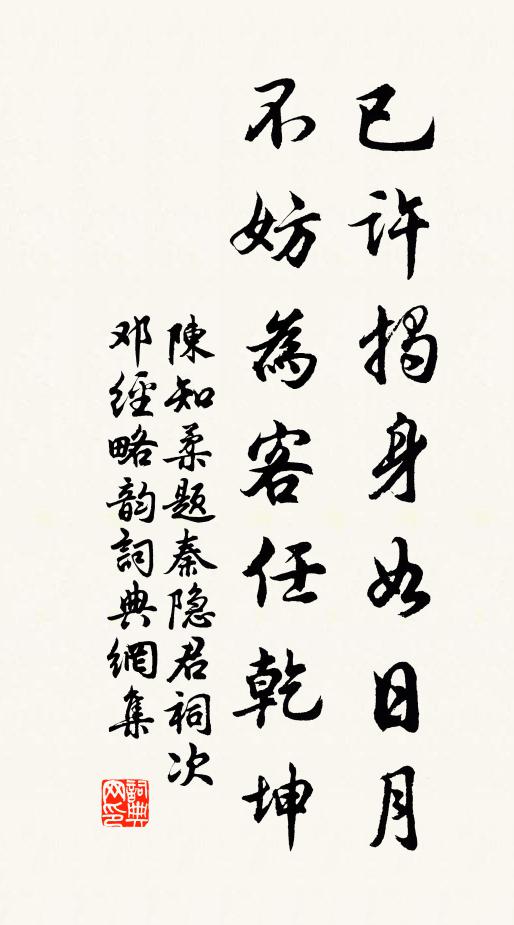 已许揭身如日月
不妨為客任乾坤
陳知柔题秦隐君祠次
邓經略韵詞典網集
詞典网印